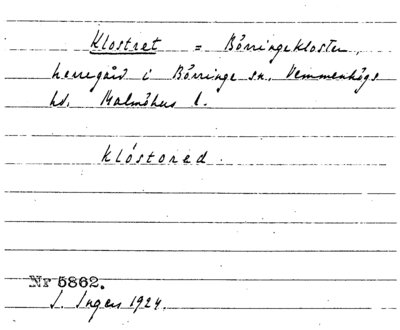 Klostret = Börringekloster,
herregård i Börringe sn, Vemmenhögs
hd. Malmöhus l.
klóstored.
Nr 5862.
I. Ingers 1924.